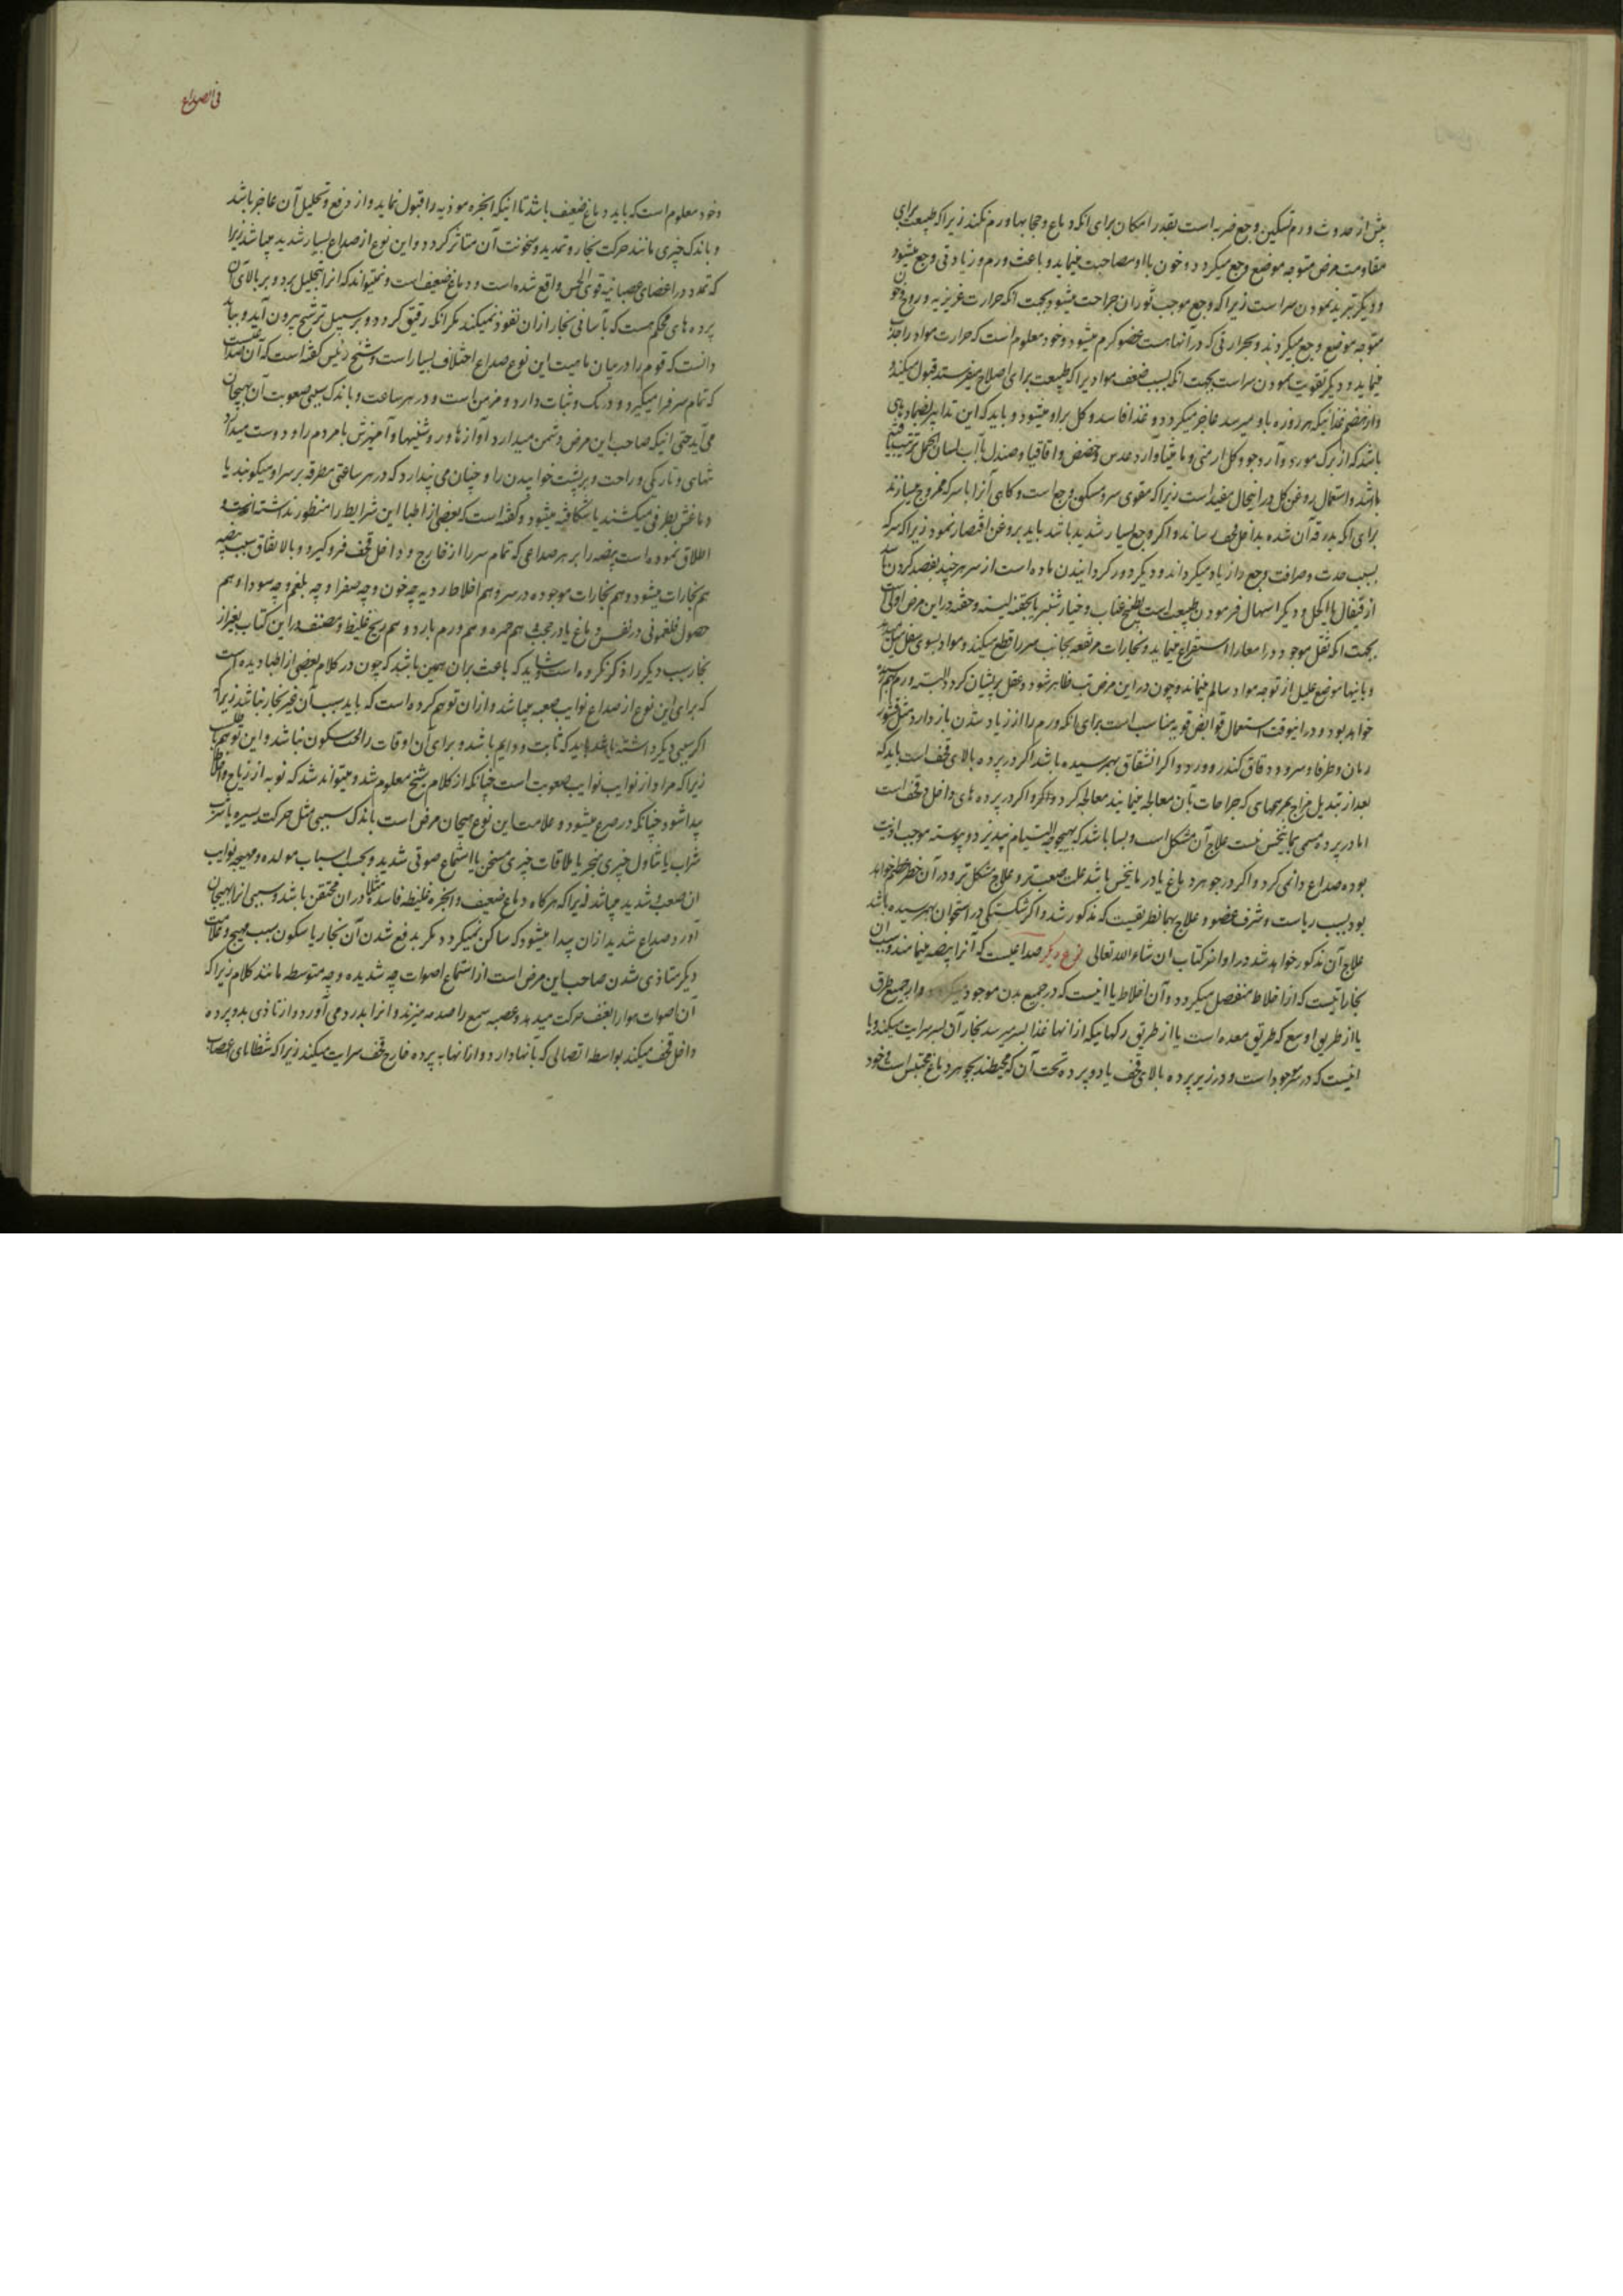 پیش از حدوث ورم تسکین وجع ضربه است بقدر امکان برای آنکه دماغ و حجابها ورم نکند زیرا که طبیعت برای
مقاومت مرض متوجه موضع وجع میگردد و خون با او مصاحبت مینماید و باعث ورم و زیادتی وجع میشود
و دیگر تبرید نمودن سر است زیرا که وجع موجب ثوران جراحت میشود بجهت آنکه حرارت غریزیه و روح و خون
متوجه موضع وجع میگردند و بحرارتی که در آنها هست عضو گرم میشود و خود معلوم است که حرارت مواد را جذب
مینماید و دیگر تقویت نمودن سر است بجهت آنکه بسبب ضعف موادیرا که طبیعت برای اصلاح میفرستد قبول میکند
و از هضم غذائیکه هر روزه باو میرسد عاجز میگردد و غذا فاسد و کل براو میشود و باید که این تدابیر بضمادهای
باشد که از برگ مورد و آرد جو و گل ارمنی و مامیثا و آرد عدس و حضض و اقاقیا و صندل با آب لسان الحمل ترتیب یافته
باشد و استعمال روغن گل در اینحال مفید است زیرا که مقوی سر و مسکن وجع است و گاهی آنرا با سرکه ممزوج میسازند
برای آنکه بدرقه آن شده بداخل قحف رساند و اگر وجع بسیار شدید باشد باید بروغن اقتصار نمود زیرا که سرکه
بسبب حدت و حرافت وجع را زیاد میگرداند و دیگر دور گردانیدن ماده است از سر هر چند بفصد کردن باشد
از قیفال یا اکحل و دیگر اسهال فرمودن طبیعت است بطبیخ عناب و خیار شنبر یا بحقنه لینه و حقنه در این مرض اولی است
بجهت آنکه ثقل موجود در امعا را استفراغ مینماید و بخارات مرتفعه بجانب سر را قطع میکند و مواد بسوی سفل میل میدهد
و باینها موضع علیل از توجه مواد سالم میماند و چون در این مرض تب ظاهر شود و عقل پریشان گردد البته ورم بهم رسیده
خواهد بود و در اینوقت استعمال قوابض قویه مناسب است برای آنکه ورم را از زیاد شدن باز دارد مثل قشور
رمان و طرفا و سرو و دقاق کندر و ورد و اگر انشقاق بهم رسیده باشد اگر در پرده بالای قحف است باید که
بعد از تبدیل مزاج بمرهمهای که جراحات بآن معالجه مینمایند معالجه کرد و اگر در پرده های داخل قحف است
اما در پرده مسمی بمانیخس نیست علاج آن مشکل است و بسا باشد که بهیچوجه التیام نپذیرد و پیوسته موجب اذیت
بوده صداع دائمی گردد و اگر در جوهر دماغ یا در مانیخس باشد علت صعب تر و علاج مشکل تر و در آن خطر عظیم خواهد
بود بسبب ریاست و شرف عضو و علاج بهمان طریقیست که مذکور شد و اگر شکستگی در استخوان بهم رسیده باشد
علاج آن مذکور خواهد شد در اواخر کتاب ان شاء الله تعالی نوع دیگر صداعیست که آنرا بیضه مینامند و سبب آن
بخاراتیست که از اخلاط منفصل میگردد و آن اخلاط یا آنست که در جمیع بدن موجود میگردد و از جمیع طرق
یا از طریق اوسع که طریق معده است یا از طریق رگهائیکه از آنها غذا بسر میرسد بخار آن بسر سرایت میکند و یا
آنست که در سر موجود است و در زیر پرده بالای قحف یا دو پرده تحت آن که محیطند بجوهر دماغ محتبس است و خود
فی الصداع
و خود معلوم است که باید دماغ ضعیف باشد تا اینکه ابخره موذیه را قبول نماید و از دفع و تحلیل آن عاجز باشد
و باندک چیزی مانند حرکت بخار و تمدید و سخونت آن متاثر گردد و این نوع از صداع بسیار شدید میباشد زیرا
که تمدد در اعضای عصبانیه قوی الحس واقع شده است و دماغ ضعیف است و نمیتواند که آنرا تحلیل برد و بر بالای آن
پرده های محکم هست که بآسانی بخار از آن نفوذ نمیکند مگر آنکه رقیق گردد و بر سبیل ترشح بیرون آید و باید
دانست که قوم را در میان ماهیت این نوع صداع اختلاف بسیار است و شیخ رئیس گفته است که آن صداعیست
که تمام سر فرا میگیرد و درنگ و ثبات دارد و مزمن است و در هر ساعت و باندک سببی صعوبت آن بهیجان
می آید حتی اینکه صاحب این مرض دشمن میدارد آوازها و روشنیها و آمیزش با مردم را و دوست میدارد
تنهای و تاریکی و راحت و بر پشت خوابیدن را و چنان می پندارد که در هر ساعتی مطرقه بر سر او میکوبند یا
دماغش بطرفی میکشند یا شکافته میشود و گفته است که بعضی از اطبا این شرایط را منظور نداشته اند و
اطلاق نموده است بیضه را بر هر صداعی که تمام سر را از خارج و داخل قحف فرو گیرد و بالاتفاق سبب بیضه
هم بخارات میشود و هم بخارات موجوده در سر و هم اخلاط ردیه چه خون و چه صفرا و چه بلغم و چه سودا و هم
حصول فلغمونی در نفس دماغ یا در حجب هم حمره و هم ورم بارد و هم ریح غلیظ و مصنف در این کتاب بغیر از
بخار سبب دیگر را ذکر نکرده است و شاید که باعث بر آن همین باشد که چون در کلام بعضی از اطبا دیده است
که برای این نوع از صداع نوایب صعبه میباشد و از آن توهم کرده است که باید سبب آن غیر بخار نباشد زیرا که
اگر سببی دیگر داشته باشد باید که ثابت و دایم باشد و برای آن اوقات راحت و سکون نباشد و این توهم باطلست
زیرا که مراد از نوایب نوایب صعوبت است چنانکه از کلام شیخ معلوم شد و میتواند شد که نوبه از ریاح و اخلاط
پیدا شود چنانکه در صرع میشود و علامت این نوع هیجان مرض است باندک سببی مثل حرکت یسیر و یا شرب
شراب یا تناول چیزی مبخر یا ملاقات چیزی مسخن یا استماع صوتی شدید و بحسب اسباب مولده و مهیجه نوایب
آن صعب و شدید میباشد زیرا که هر گاه دماغ ضعیف و ابخره غلیظه فاسده مثلا در آن محتقن باشد و سببی آنرا بهیجان
آورد صداع شدید از آن پیدا میشود که ساکن نمیگردد مگر بدفع شدن آن بخار یا سکون سبب مهیج و علامت
دیگر متاذی شدن صاحب این مرض است از استماع اصوات چه شدیده و چه متوسطه مانند کلام زیرا که
آن اصوات هوا را بعنف حرکت میدهد و عصبه سمع را صدمه میزند و آنرا بدرد می آورد و از تاذی بدو پرده
داخل قحف میکند بواسطه اتصالی که بآنها دارد و از آنها به پرده خارج قحف سرایت میکند زیرا که شظایای عصاب